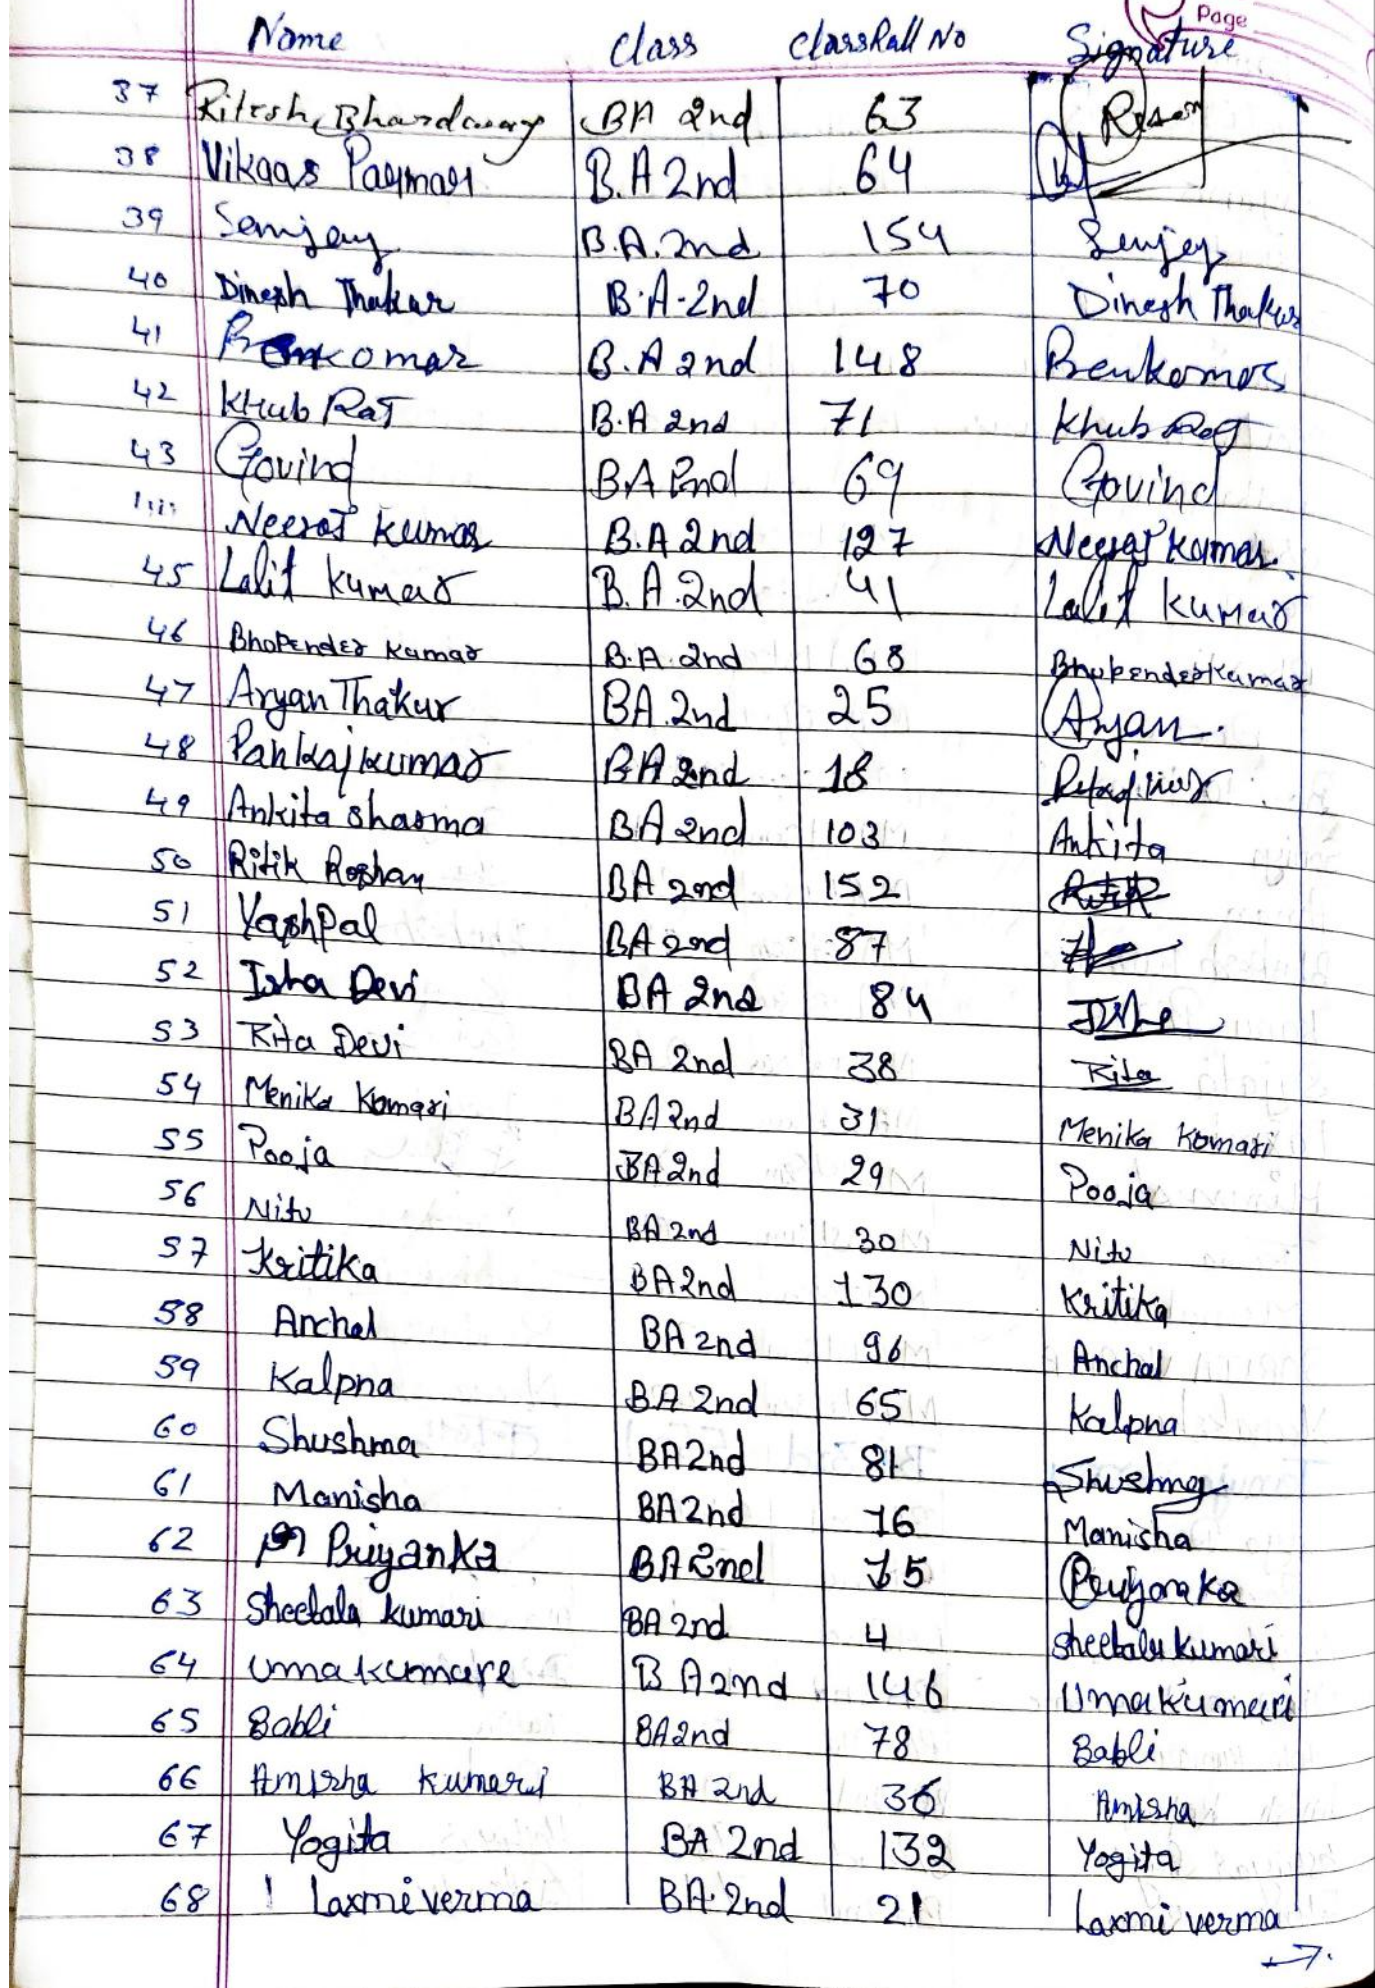 Page
Name Class ClassRall No Signature
37 Ritesh Bhardwaj BA 2nd 63
38 Vikaas Paymar B.A 2nd 64
39 Semjay B.A. 2nd 154 Senjey
40 Dinesh Thakur B.A-2nd 70 Dinesh Thakur
41 B.A 2nd 148 Benkomar
42 KHub RaJ B.A 2nd 71 Khub Raj
43 Govind BA 2nd 69 Govind
Neeraj Kumar B.A 2nd 127 Neeraj Kumar.
45 Lalit Kumar B.A.2nd 41 Lalit Kumar
46 BhoPender Kumar B.A. 2nd 68 BhupenderKumar
47 Aryan Thakur BA.2nd 25 Aryan.
48 Pankaj kumar BA 2nd 18
49 Ankita sharma BA 2nd 103 Ankita
50 Ritik Roshan BA 2nd 152 Ritik
51 YashPal BA 2nd 87
52 Isha Devi BA 2nd 84 Isha
53 Rita Devi BA 2nd 38 Rita
54 Menika Komari BA 2nd 31 Menika Komari
55 Pooja BA 2nd 29 Pooja
56 Nitu BA 2nd 30 Nitu
57 Kritika BA 2nd 130 Kritika
58 Anchal BA 2nd 96 Anchal
59 Kalpna BA 2nd 65 Kalpna
60 Shushma BA 2nd 81 Shushma
61 Manisha BA 2nd 76 Manisha
62 Priyanka BA 2nd 75 Priyanka
63 Sheetala kumari BA 2nd 4 Sheetala kumari
64 Uma kumare B A 2nd 146 Uma Kumari
65 Babli BA 2nd 78 Babli
66 Amisha Kumari BA 2nd 36 Amisha
67 Yogita BA 2nd 132 Yogita
68 Laxmi verma BA.2nd 21 Laxmi verma